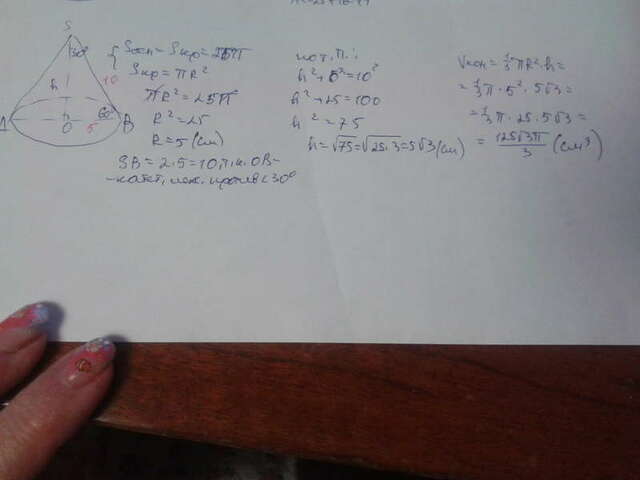 S
30°
h
10
60°
A
O
5
B
Sосн = Sкр = 25π
Sкр = πR²
πR² = 25π
R² = 25
R = 5 (см)
SB = 2·5 = 10, т.к. OB –
– катет, леж. против < 30°
по т. П.:
h² + 5² = 10²
h² + 25 = 100
h² = 75
h = √75 = √25·3 = 5√3 (см)
Vкон = 1/3 πR²·h =
= 1/3 π · 5² · 5√3 =
= 1/3 π · 25 · 5√3 =
= 125√3π/3 (см³)